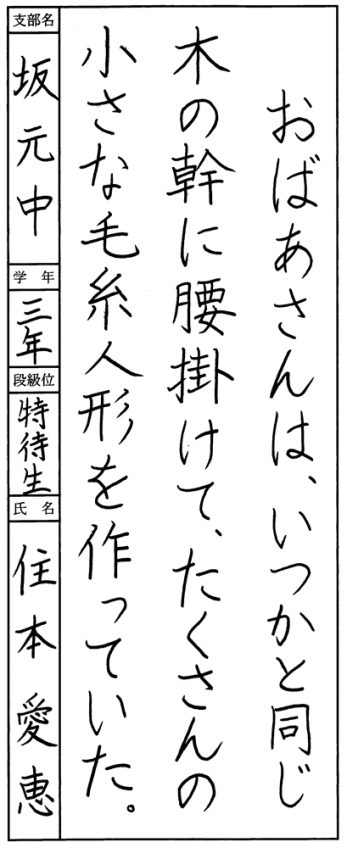 おばあさんは、いつかと同じ
木の幹に腰掛けて、たくさんの
小さな毛糸人形を作っていた。
支部名
坂元中
学年
三年
段級位
特待生
氏名
住本愛恵